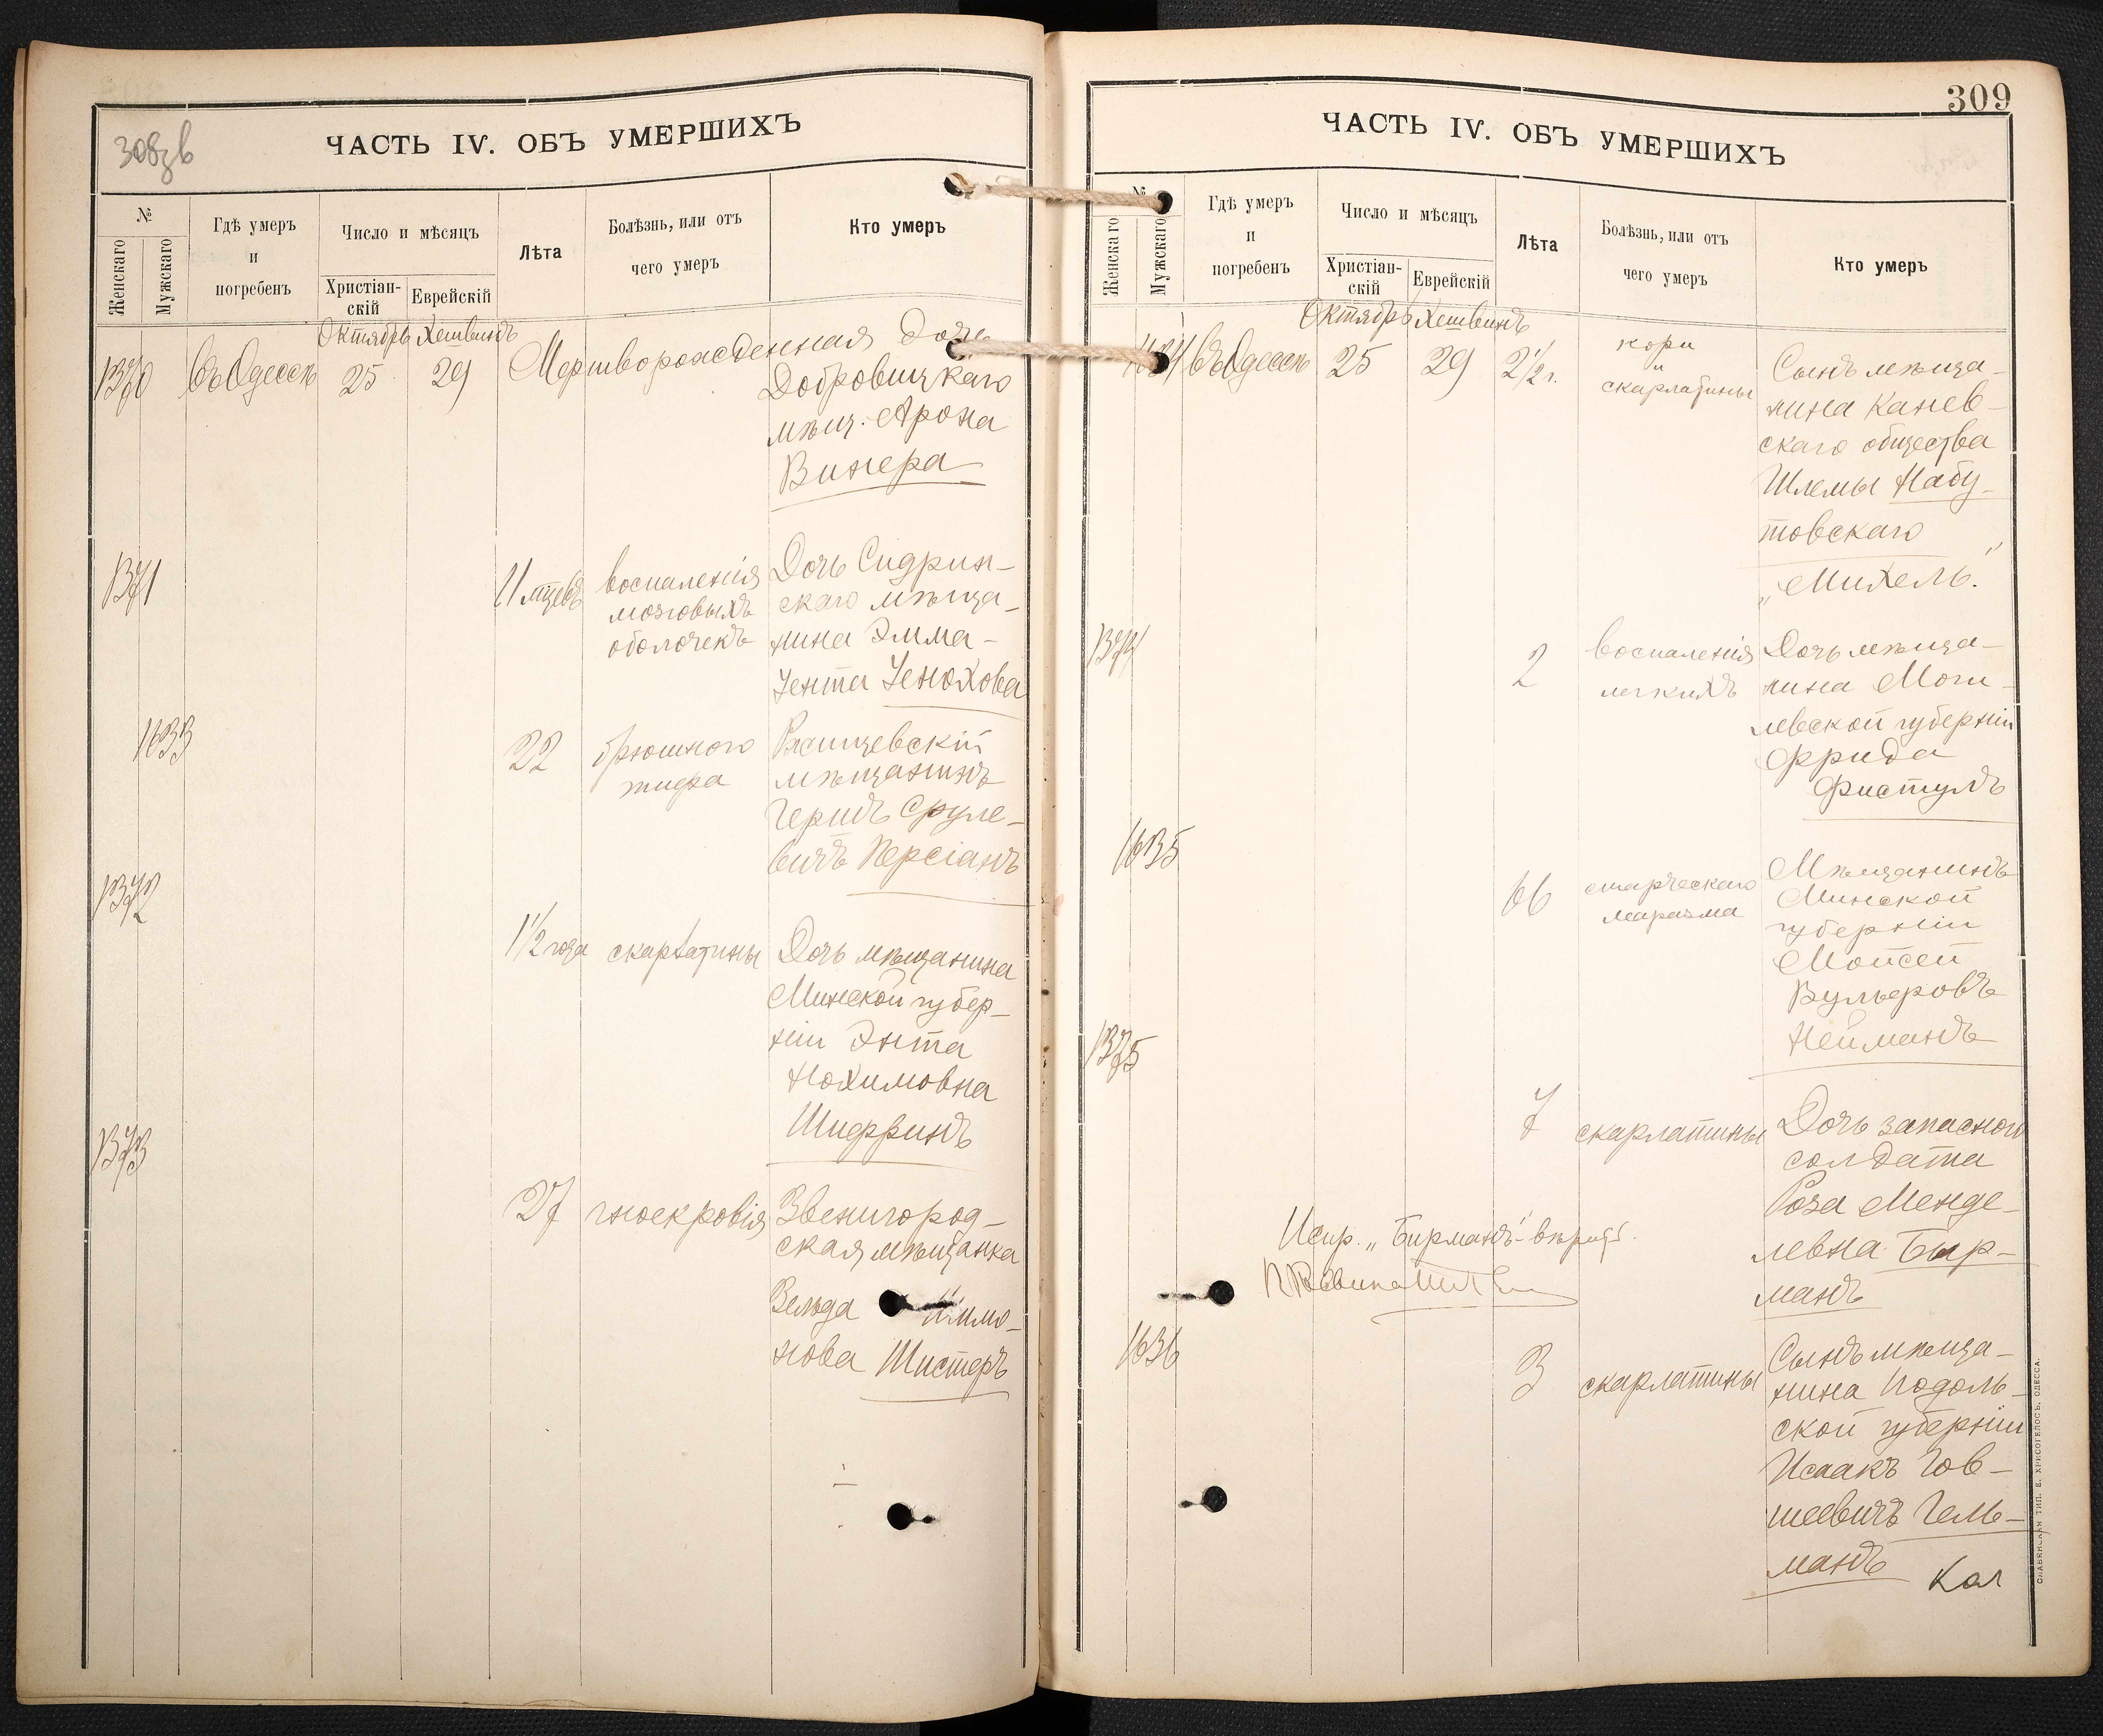 308зв
ЧАСТЬ IV. ОБЪ УМЕРШИХЪ
№
Женскаго
Мужскаго
Гдѣ умеръ
и
погребенъ
Число и мѣсяцъ
Христіан-
скій
Еврейскій
Лѣта
Болѣзнь, или отъ
чего умеръ
Кто умеръ
Октябрь Хешвинъ
1370 въ Одессѣ 25 29 Мертворожденная дочь
Добровицкаго
мѣщ. Арона
Винера
1371 11 мцевъ воспаленія
мозговыхъ
оболочекъ
Дочь Сидрин-
скаго мѣща-
нина Эмма-
Гента Генохова
1633 22 брюшного
тифа
Рясищевскій
мѣщанинъ
Герцъ Сруле-
вичъ Персіанъ
1372 1½ года скарлатины Дочь мѣщанина
Минской губер-
ніи Энта
Нохимовна
Шифринъ
1373 27 гноекровія Звенигород-
ская мѣщанка
Вельда
нова Шистеръ
309
ЧАСТЬ IV. ОБЪ УМЕРШИХЪ
№
Женскаго
Мужскаго
Гдѣ умеръ
и
погребенъ
Число и мѣсяцъ
Христіан-
скій
Еврейскій
Лѣта
Болѣзнь, или отъ
чего умеръ
Кто умеръ
Октябрь Хешвинъ
1634 въ Одессѣ 25 29 2½ г. кори
и
скарлатины
Сынъ мѣща-
нина Канев-
скаго общества
Шлемы Набу-
товскаго
„Михель"
1374 2 воспаленія
легкихъ
Дочь мѣща-
нина Моги-
левской губерніи
Фрида
Фистулъ
1635 66 старческаго
маразма
Мѣщанинъ
Минской
губерніи
Мойсей
Вульфовъ
Нейманъ
1375 7 скарлатины Дочь запасного
солдата
Роза Менде-
левна Бир-
манъ
Испр. „Бирманъ" вѣрить.
1636 3 скарлатины Сынъ мѣща-
нина Подоль-
ской губерніи
Исаакъ Гов-
шеевичъ Гель-
манъ
Кал
СЛАВЯНСКАЯ ТИП. Е. ХРИСОГЕЛОСЪ, ОДЕССА.